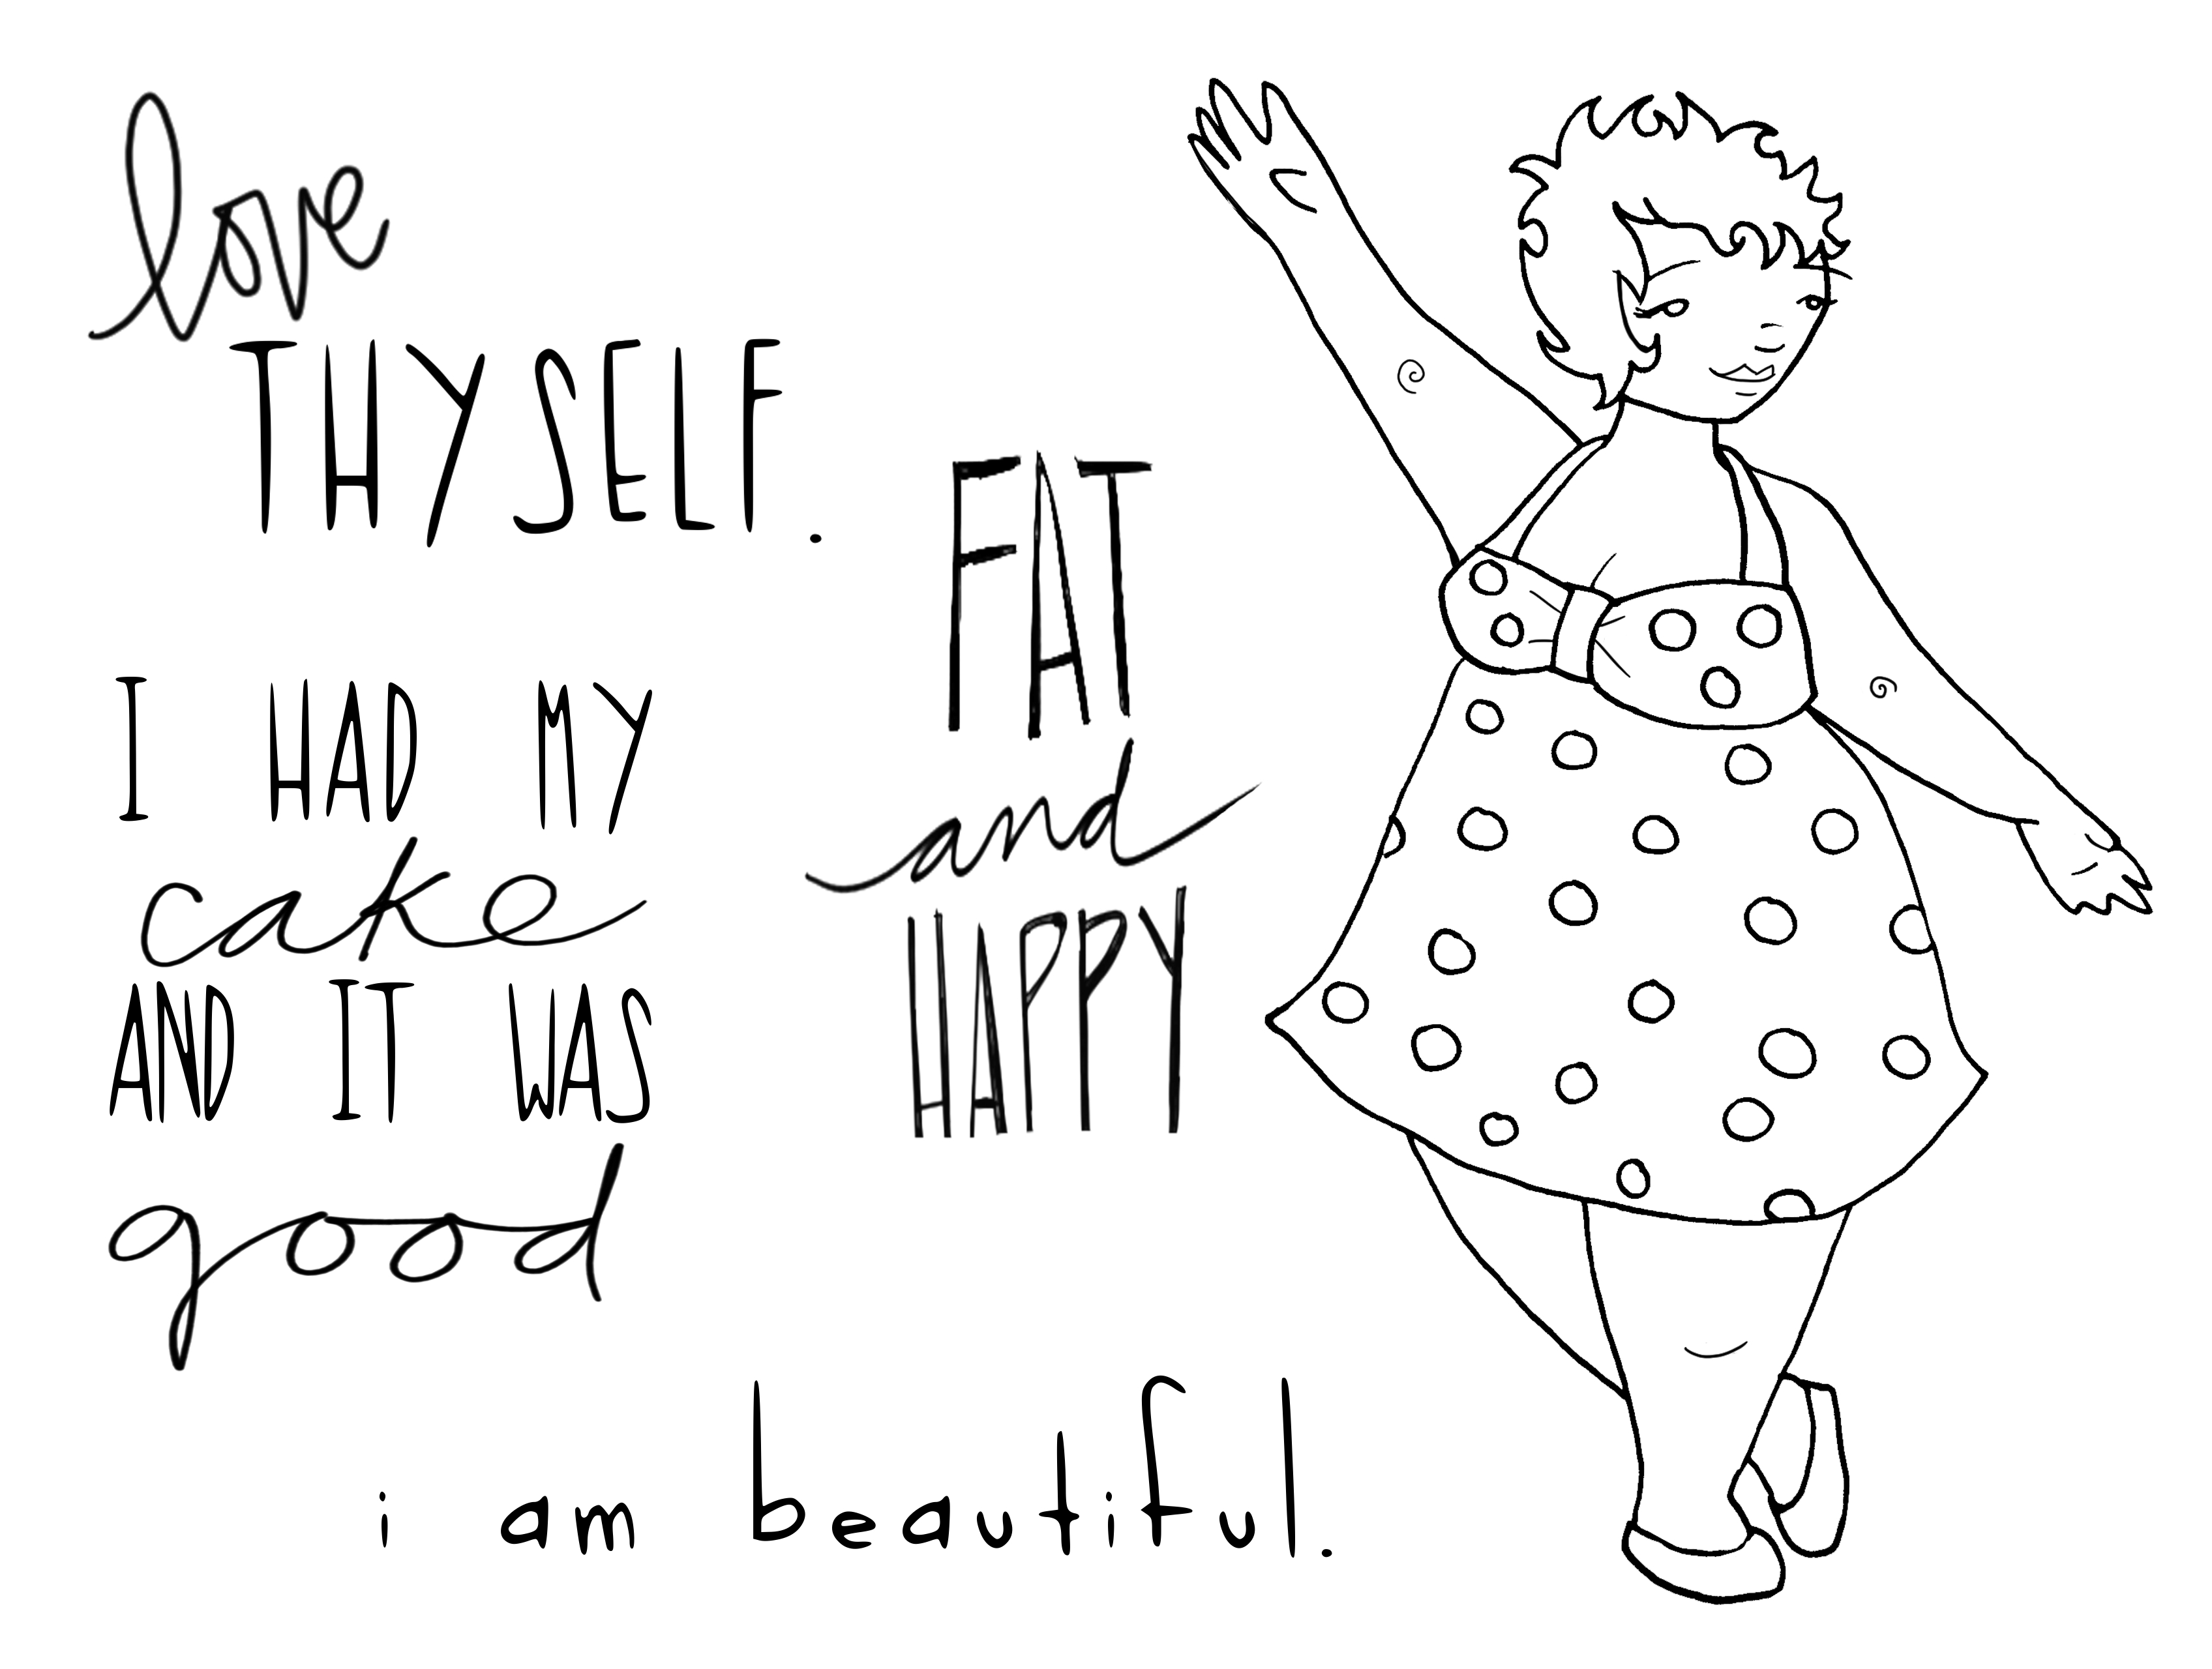 love
THYSELF.
I HAD MY
cake
AND IT WAS
good
FAT
and
HAPPY
i am beautiful.